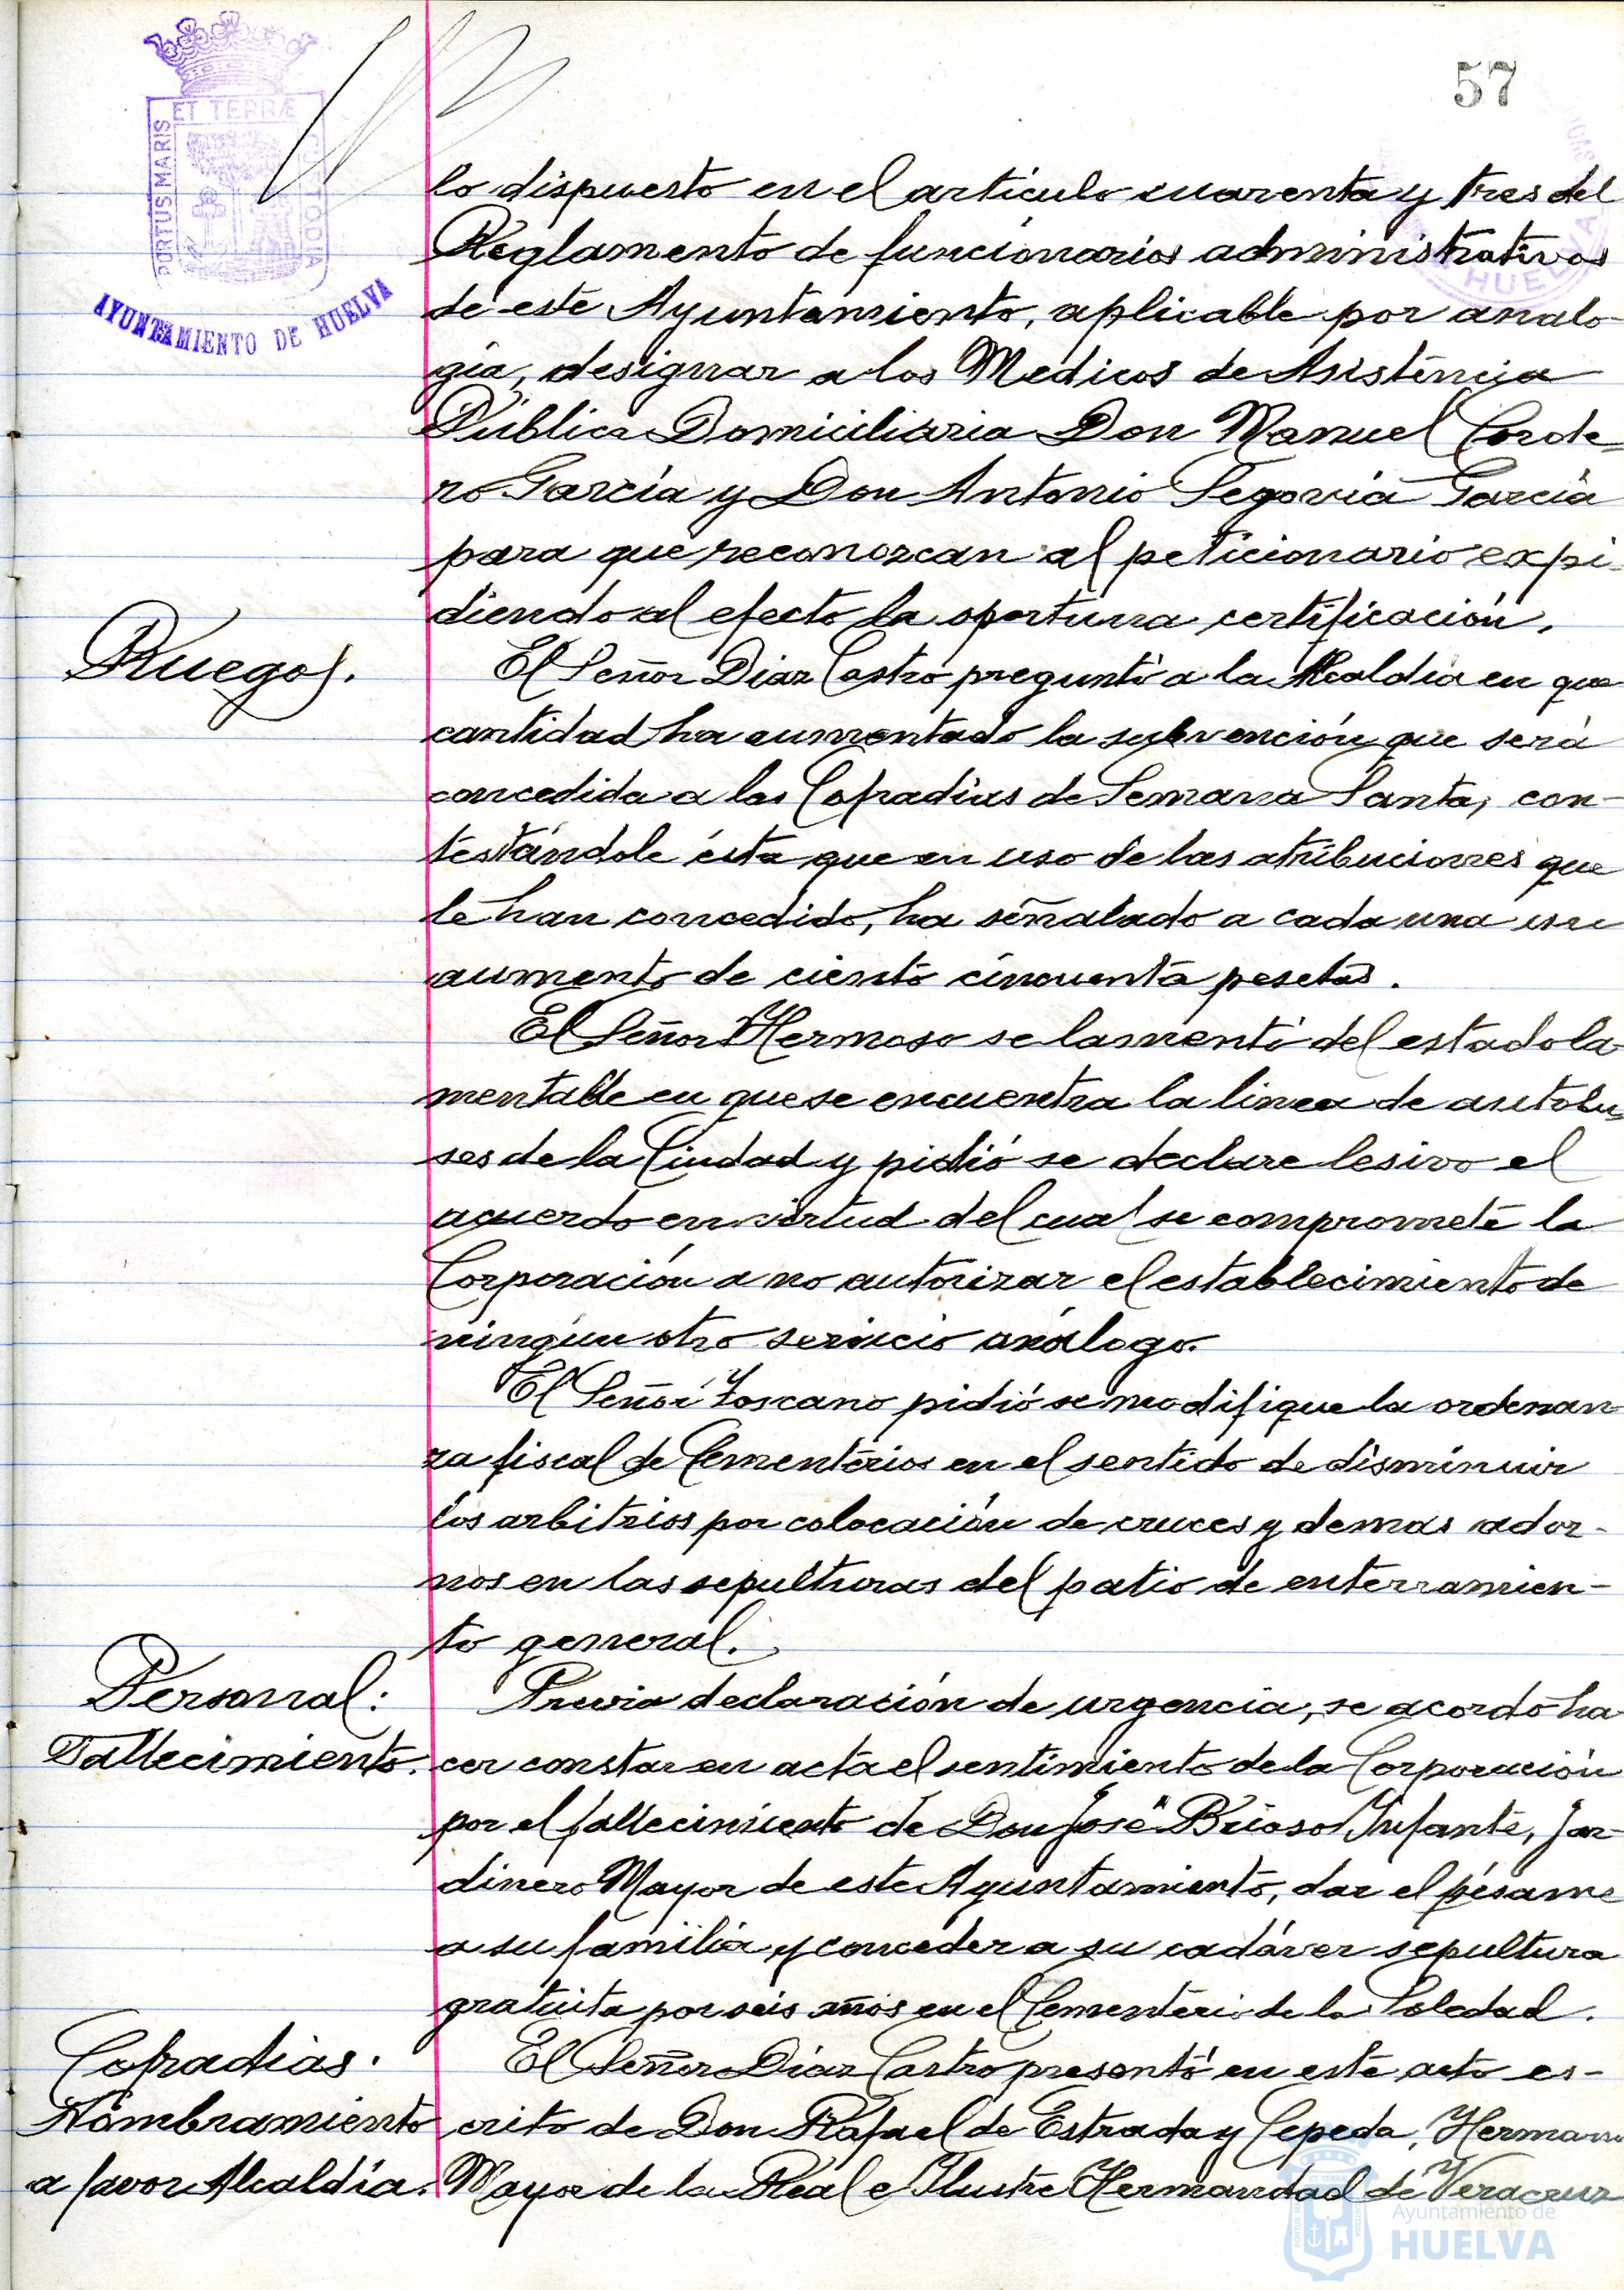 57
PORTUS MARIS
ET TERRÆ
CUSTODIA
AYUNTAMIENTO DE HUELVA
HUELVA
lo dispuesto en el artículo cuarenta y tres del
Reglamento de funcionarios administrativos
de este Ayuntamiento, aplicable por analo-
gía, designar a los Medicos de Asistencia
Pública Domiciliaria Don Manuel Corde-
ro García y Don Antonio Segovia García
para que reconozcan al peticionario expi-
diendo al efecto la oportuna certificación.
Ruegos.
El Señor Diaz Castro preguntó a la Alcaldía en que
cantidad ha aumentado la subvención que será
concedida a las Cofradías de Semana Santa, con-
testándole ésta que en uso de las atribuciones que
le han concedido, ha señalado a cada una un
aumento de ciento cincuenta pesetas.
El Señor Hermoso se lamentó del estado la-
mentable en que se encuentra la línea de autobu-
ses de la Ciudad y pidió se declare lesivo el
acuerdo en virtud del cual se comprometé la
Corporación a no autorizar el establecimiento de
ningún otro servicio análogo.
El Señor Toscano pidió se modifique la ordenan-
za fiscal de Cementerios en el sentido de disminuir
los arbitrios por colocación de cruces y demas ador-
nos en las sepulturas del patio de enterramien-
to general.
Personal:
Fallecimiento.
Previa declaración de urgencia, se acordó ha-
cer constar en acta el sentimiento de la Corporación
por el fallecimiento de Don José Brioso Infante, Jar-
dinero Mayor de este Ayuntamiento, dar el pésame
a su familia y conceder a su cadáver sepultura
gratuita por seis años en el Cementerio de la Soledad.
Cofradias.
Nombramiento
a favor Alcaldía.
El Señor Díaz Castro presentó en este acto es-
crito de Don Rafael de Estrada y Cepeda, Hermano
Mayor de la Real e Ilustre Hermandad de Veracruz
Ayuntamiento de
HUELVA